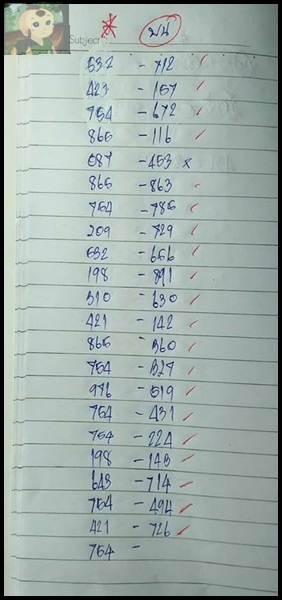 Subject
บน
532 - 712
423 - 157
754 - 672
865 - 116
087 - 453 x
865 - 863
754 - 785
209 - 729
532 - 656
198 - 891
310 - 630
421 - 142
865 - 360
754 - 327
976 - 519
754 - 431
754 - 224
198 - 143
643 - 714
754 - 494
421 - 726
754 -